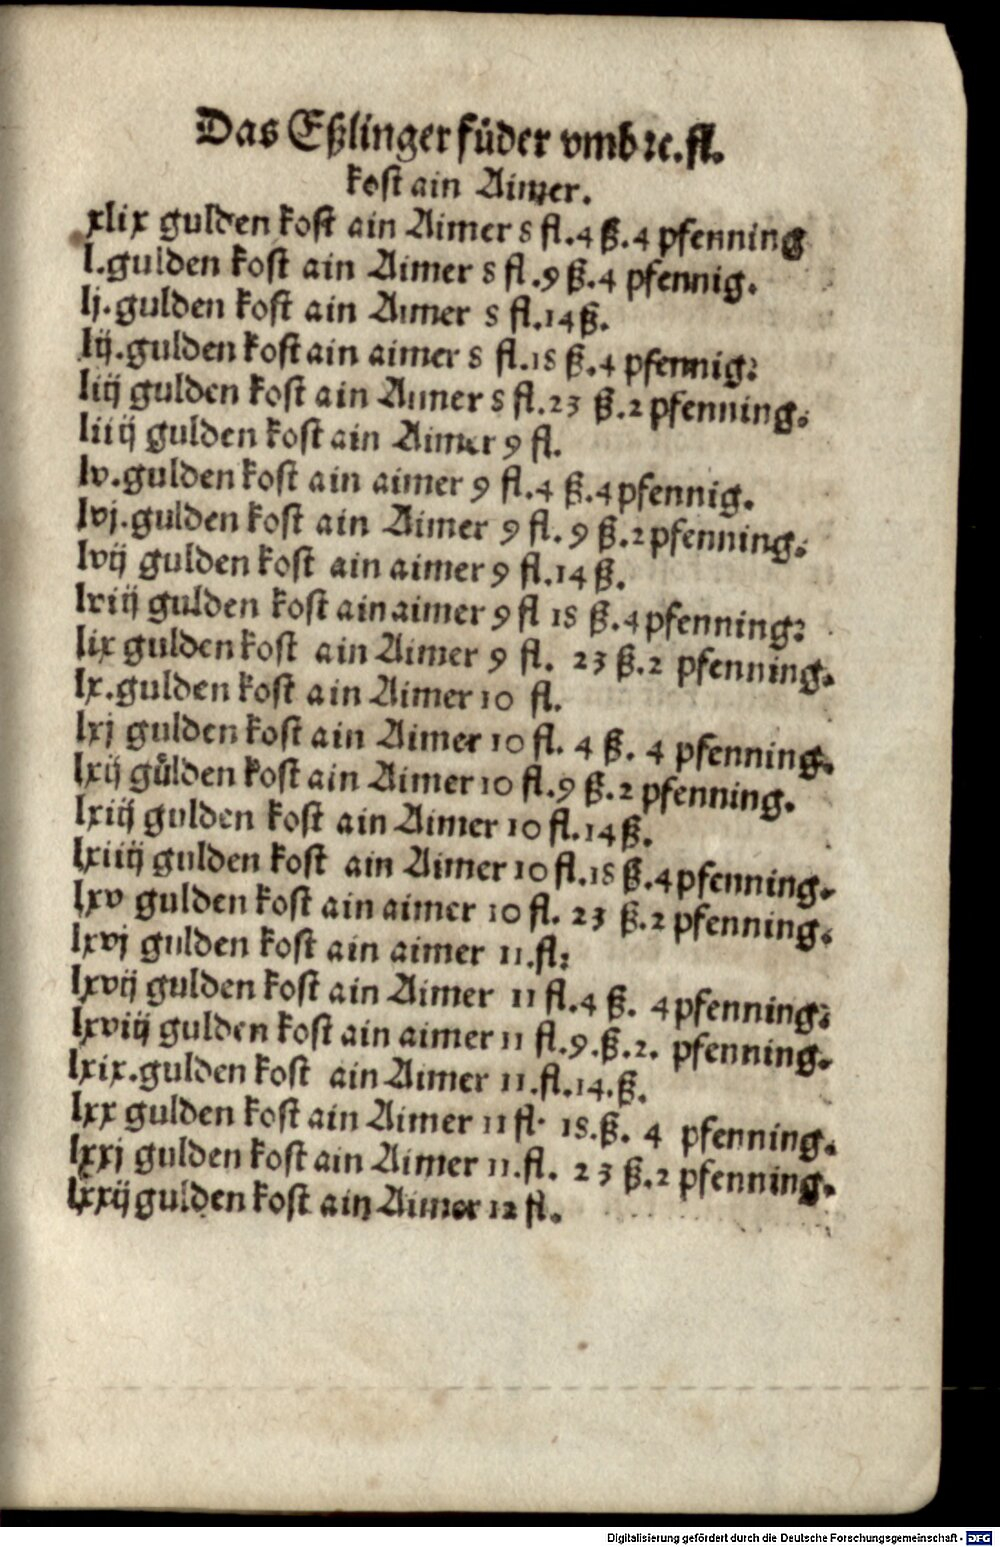 Das Eßlinger füder vmb ꝛc. fl.
kost ain Aimer.
xlix gulden kost ain Aimer 8 fl. 4 ß. 4 pfenning
l. gulden kost ain Aimer 8 fl. 9 ß. 4 pfennig.
lj. gulden kost ain Aimer 8 fl. 14 ß.
lij. gulden kost ain aimer 8 fl. 18 ß. 4 pfennig:
liij gulden kost ain Aimer 8 fl. 23 ß. 2 pfenning.
liiij gulden kost ain Aimer 9 fl.
lv. gulden kost ain aimer 9 fl. 4 ß. 4 pfennig.
lvj. gulden kost ain Aimer 9 fl. 9 ß. 2 pfenning.
lvij gulden kost ain aimer 9 fl. 14 ß.
lviij gulden kost ain aimer 9 fl 18 ß. 4 pfenning:
lix gulden kost ain Aimer 9 fl. 23 ß. 2 pfenning.
lx. gulden kost ain Aimer 10 fl.
lxj gulden kost ain Aimer 10 fl. 4 ß. 4 pfenning.
lxij gůlden kost ain Aimer 10 fl. 9 ß. 2 pfenning.
lxiij gulden kost ain Aimer 10 fl. 14 ß.
lxiiij gulden kost ain Aimer 10 fl. 18 ß. 4 pfenning.
lxv gulden kost ain aimer 10 fl. 23 ß. 2 pfenning.
lxvj gulden kost ain aimer 11. fl:
lxvij gulden kost ain Aimer 11 fl. 4 ß. 4 pfenning:
lxviij gulden kost ain aimer 11 fl. 9. ß. 2. pfenning.
lxix. gulden kost ain Aimer 11. fl. 14. ß.
lxx gulden kost ain Aimer 11 fl. 18. ß. 4 pfenning.
lxxj gulden kost ain Aimer 11. fl. 23 ß. 2 pfenning.
lxxij gulden kost ain Aimer 12 fl.
Digitalisierung gefördert durch die Deutsche Forschungsgemeinschaft - DFG